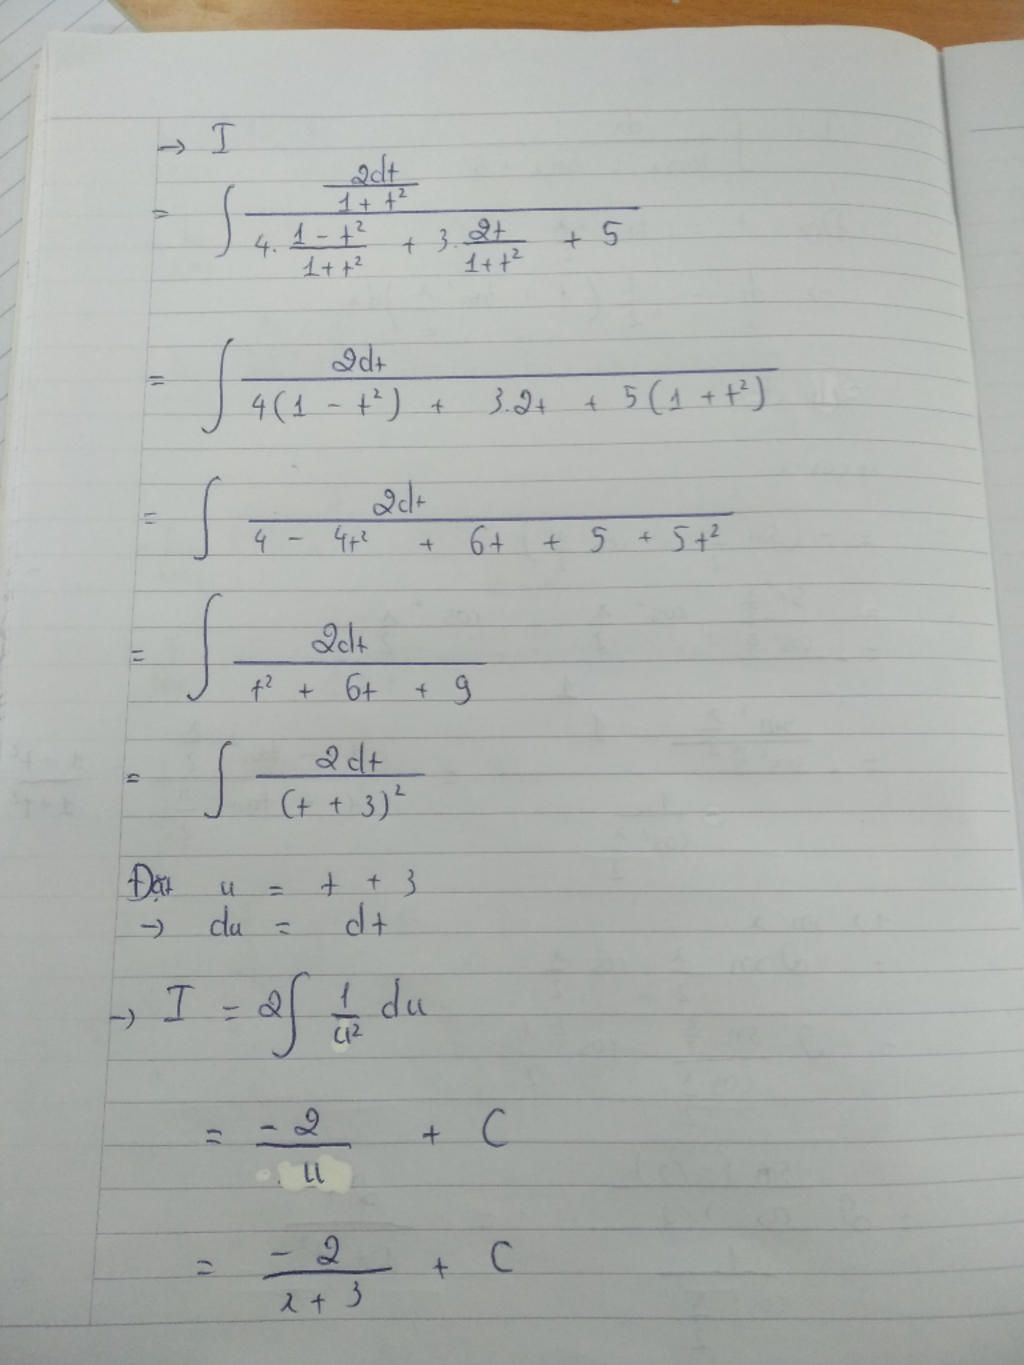 → I
= ∫ (2dt / (1 + t²)) / (4. (1 - t²)/(1 + t²) + 3. 2t/(1 + t²) + 5)
= ∫ 2dt / (4(1 - t²) + 3.2t + 5(1 + t²))
= ∫ 2dt / (4 - 4t² + 6t + 5 + 5t²)
= ∫ 2dt / (t² + 6t + 9)
= ∫ 2dt / (t + 3)²
Đặt u = t + 3
→ du = dt
→ I = 2∫ 1/u² du
= -2/u + C
= -2/(x + 3) + C